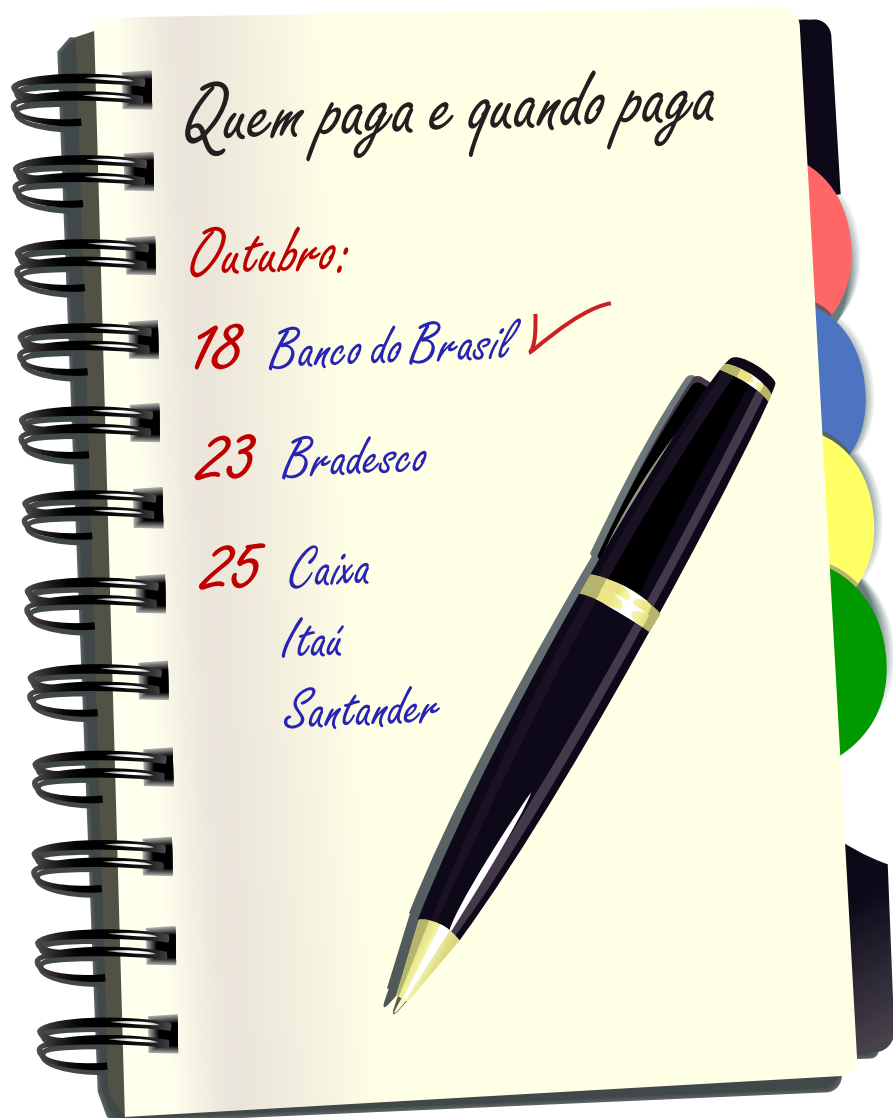 Quem paga e quando paga
Outubro:
18 Banco do Brasil
23 Bradesco
25 Caixa
Itaú
Santander